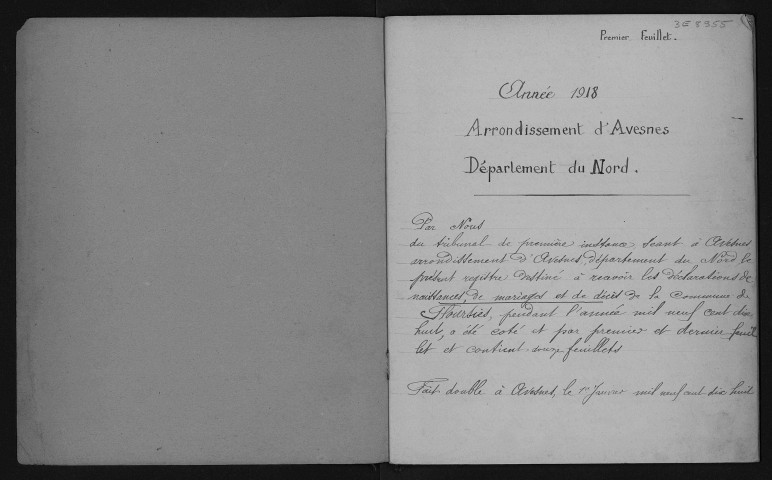 3E 8355
Premier Feuillet.
Année 1918
Arrondissement d'Avesnes
Département du Nord.
Par Nous
du tribunal de première instance, séant à Avesnes
arrondissement d'Avesnes, département du Nord le
présent registre destiné à recevoir les déclarations de
naissances, de mariages et de décès de la commune de
Floursies, pendant l'année mil neuf cent dix
huit, a été coté et par premier et dernier feuil
let et contient douze feuillets
Fait double à Avesnes, le 1er Janvier mil neuf cent dix huit